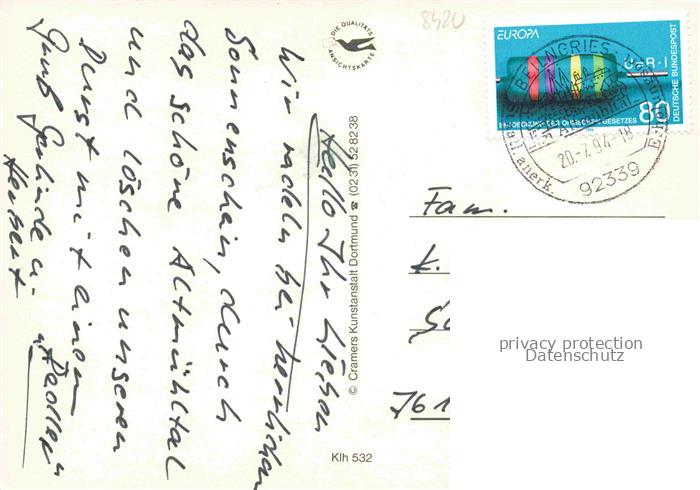 Hallo Ihr Lieben
Wir radeln bei herrlichem
Sonnenschein, durch
das schöne Altmühltal
und löschen unseren
Durst mit einem
"Radler"
Gruß Gerlinde u.
Herbert
DIE QUALITÄTS
ANSICHTSKARTE
© Cramers Kunstanstalt Dortmund ☎ (0231) 528238
Klh 532
8420
EUROPA
U=R·I
DEUTSCHE BUNDESPOST
80
ENTDECKUNG DES OHMSCHEN GESETZES
BEILNGRIES
Staatl. anerk.
Erholungsort
20.-7.94-18
92339
Fam.
K.
Sc
761
privacy protection
Datenschutz